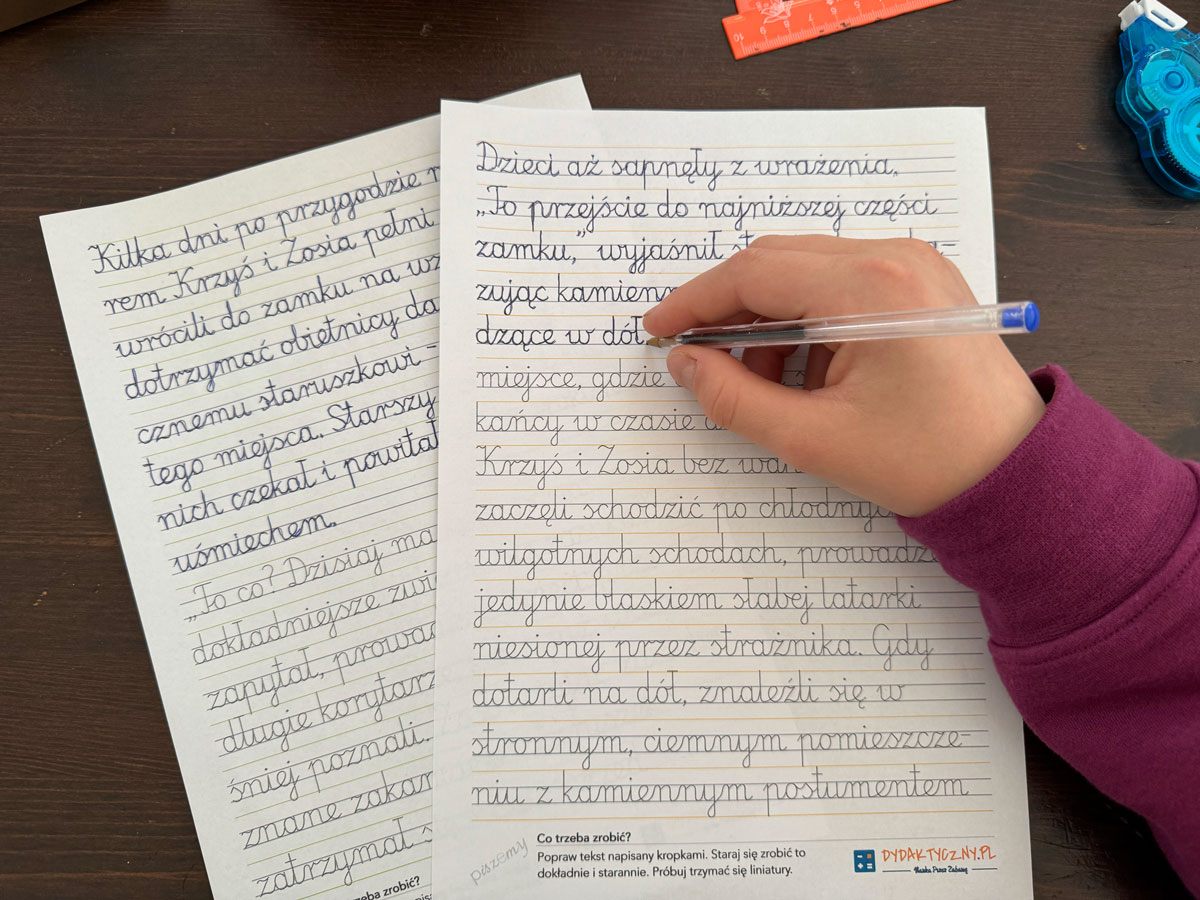 Kilka dni po przygodzie
rem Krzyś i Zosia pełni
wrócili do zamku na
dotrzymać obietnicy
cznemu staruszkowi -
tego miejsca. Starszy
nich czekał i powitał
uśmiechem.
„To co? Dzisiaj
dokładniejsze
zapytał,
długie
śniej poznali.
znane
zatrzymał
eba zrobić?
Dzieci aż sapnęły z wrażenia.
„To przejście do najniższej części
zamku,” wyjaśnił
zując
dzące w dół.
miejsce, gdzie
kańcy w czasie
Krzyś i Zosia bez
zaczęli schodzić po
wilgotnych schodach,
jedynie blaskiem słabej latarki
niesionej przez strażnika. Gdy
dotarli na dół, znaleźli się w
stronnym, ciemnym pomieszcze-
niu z kamiennym postumentem
piszemy
Co trzeba zrobić?
Popraw tekst napisany kropkami. Staraj się zrobić to
dokładnie i starannie. Próbuj trzymać się liniatury.
DYDAKTYCZNY.PL
Nauka Przez Zabawę
10 9 8 7 6 5